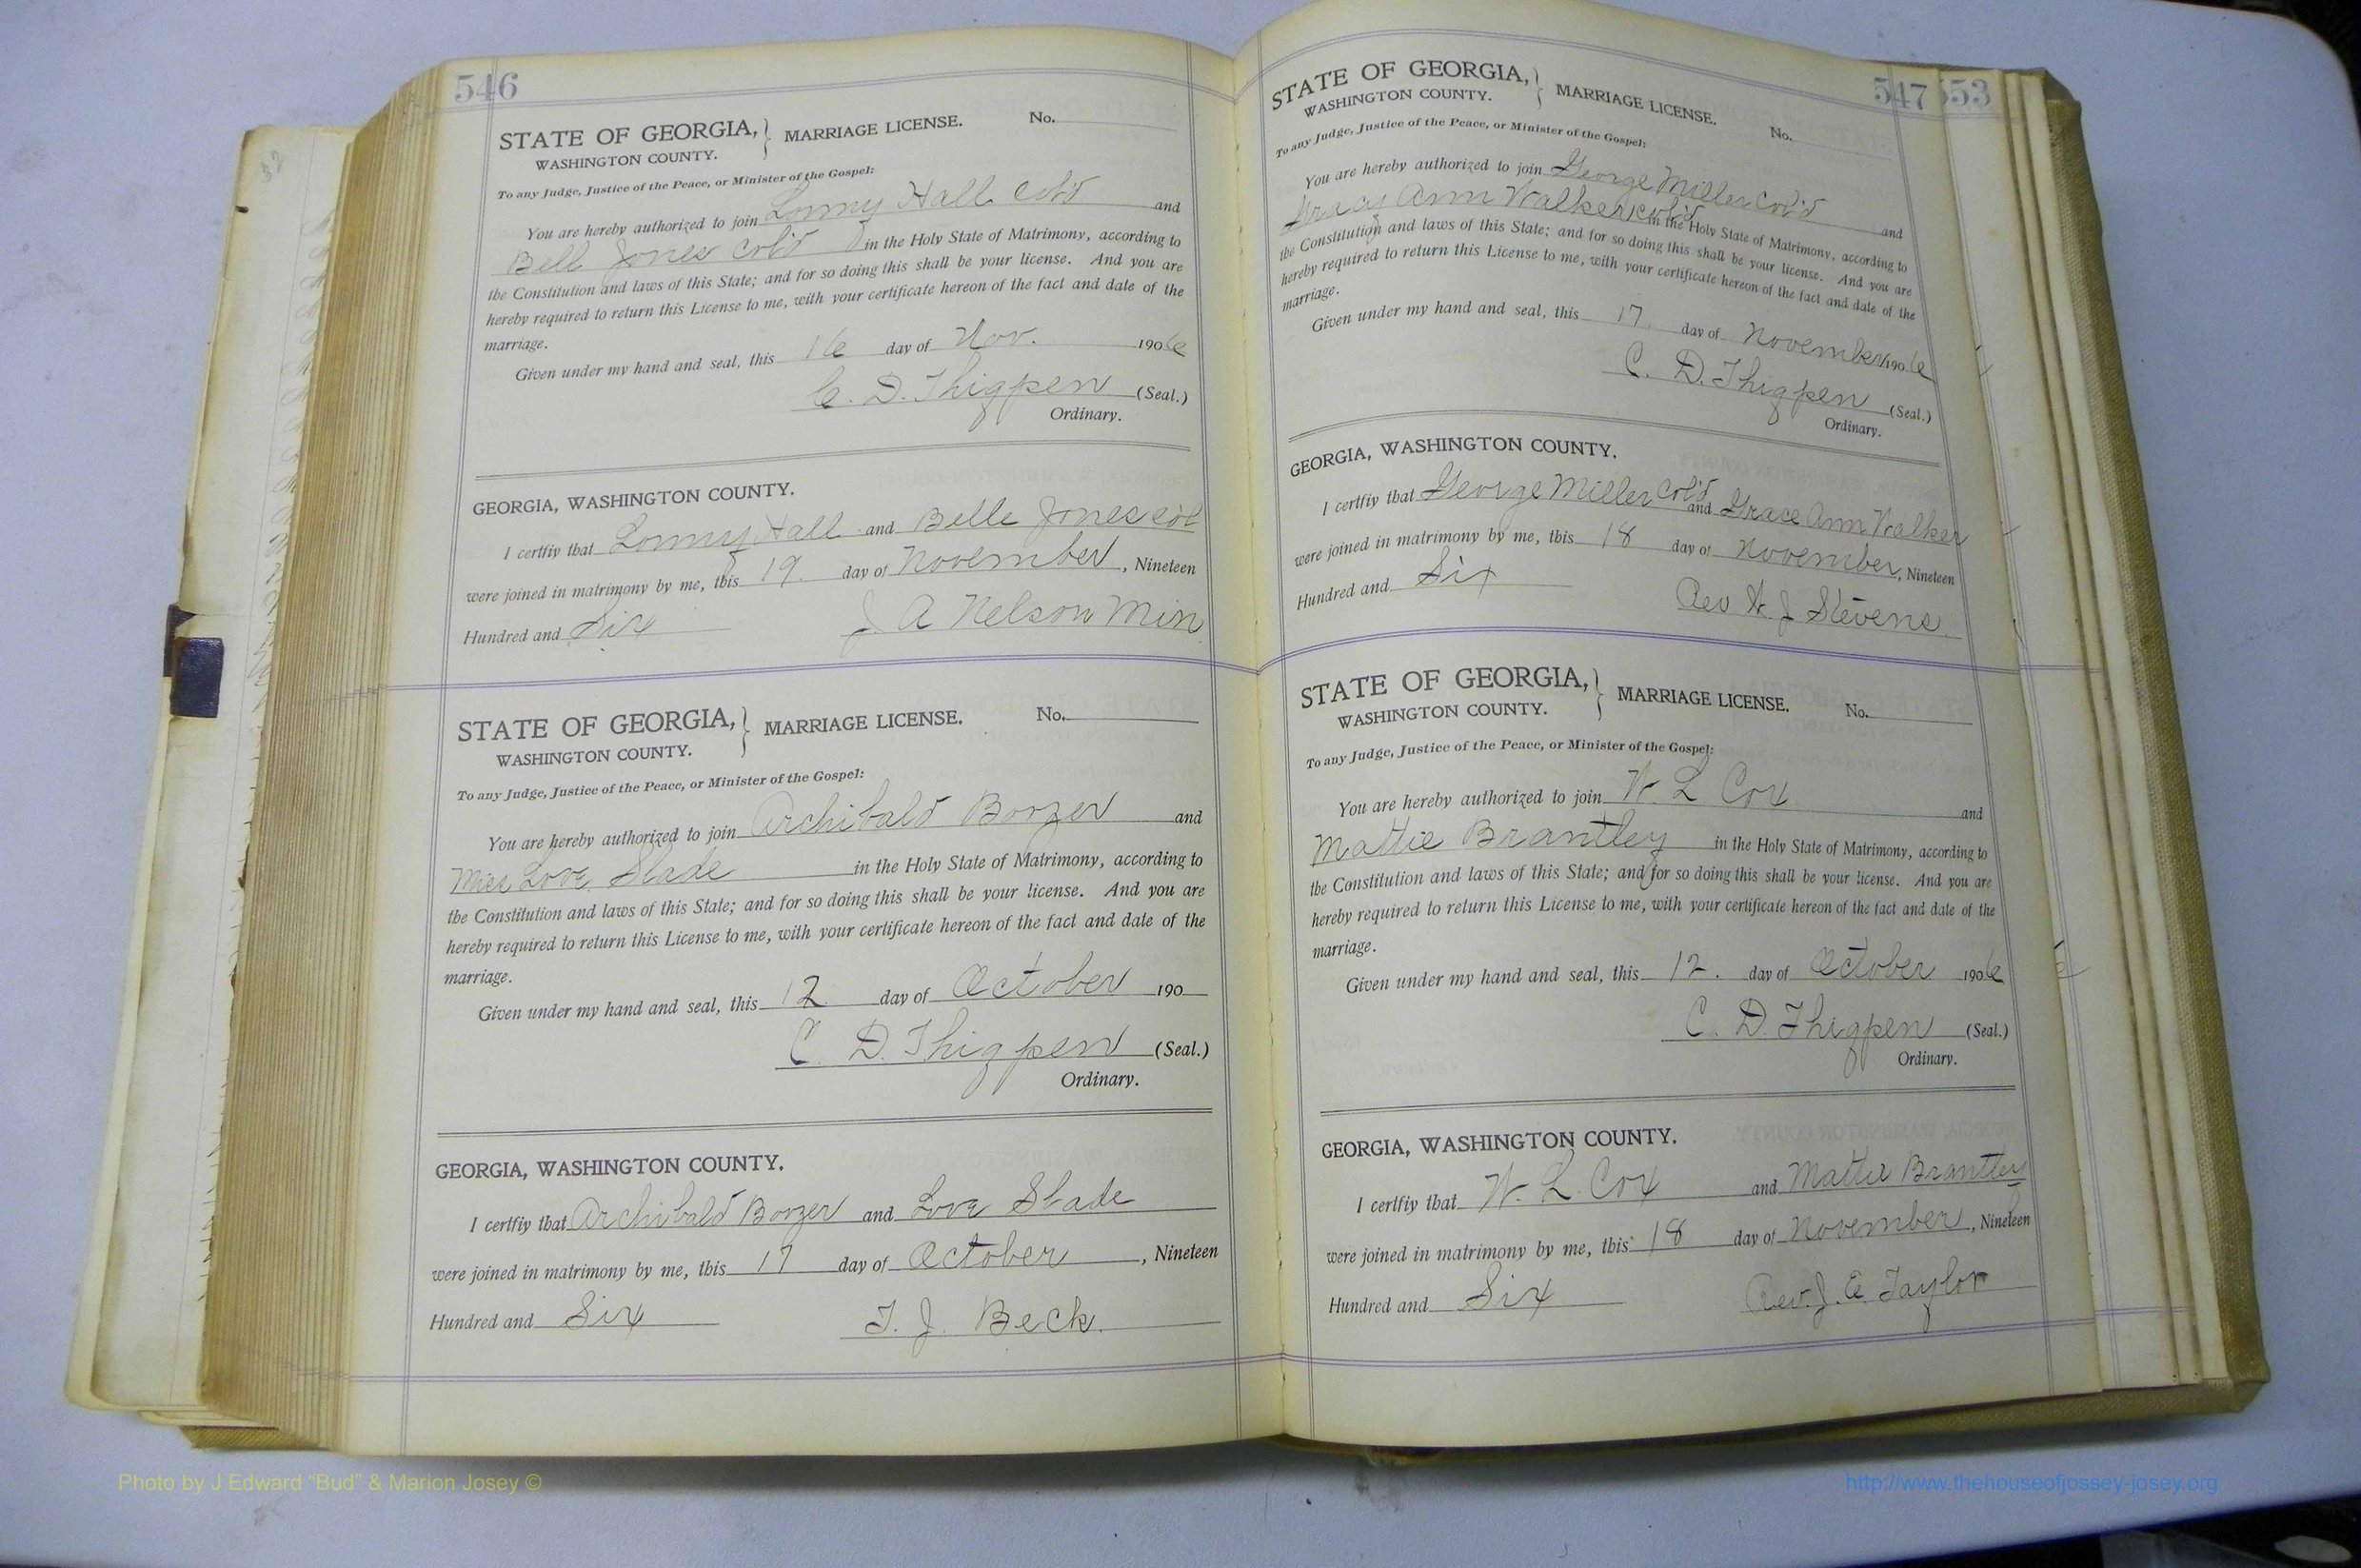 546
STATE OF GEORGIA, } MARRIAGE LICENSE. No.
WASHINGTON COUNTY.
To any Judge, Justice of the Peace, or Minister of the Gospel:
You are hereby authorized to join Lonny Hall Col'd and
Bell Jones Col'd in the Holy State of Matrimony, according to
the Constitution and laws of this State; and for so doing this shall be your license. And you are
hereby required to return this License to me, with your certificate hereon of the fact and date of the
marriage.
Given under my hand and seal, this 16 day of Nov. 1906
C. D. Thigpen (Seal.)
Ordinary.
GEORGIA, WASHINGTON COUNTY.
I certfiy that Lonny Hall and Belle Jones col
were joined in matrimony by me, this 19. day of November, Nineteen
Hundred and Six J A Nelson Min
STATE OF GEORGIA, } MARRIAGE LICENSE. No.
WASHINGTON COUNTY.
To any Judge, Justice of the Peace, or Minister of the Gospel:
You are hereby authorized to join Archibald Boozer and
Miss Love Slade in the Holy State of Matrimony, according to
the Constitution and laws of this State; and for so doing this shall be your license. And you are
hereby required to return this License to me, with your certificate hereon of the fact and date of the
marriage.
Given under my hand and seal, this 12 day of October 190
C. D. Thigpen (Seal.)
Ordinary.
GEORGIA, WASHINGTON COUNTY.
I certfiy that Archibald Boozer and Love Slade
were joined in matrimony by me, this 17 day of October, Nineteen
Hundred and Six T. J. Beck.
547 553
STATE OF GEORGIA, } MARRIAGE LICENSE. No.
WASHINGTON COUNTY.
To any Judge, Justice of the Peace, or Minister of the Gospel:
You are hereby authorized to join George Miller Col'd and
Ann Walker col'd in the Holy State of Matrimony, according to
the Constitution and laws of this State; and for so doing this shall be your license. And you are
hereby required to return this License to me, with your certificate hereon of the fact and date of the
marriage.
Given under my hand and seal, this 17. day of November 1906
C. D. Thigpen (Seal.)
Ordinary.
GEORGIA, WASHINGTON COUNTY.
I certfiy that George Miller Col'd and Grace Ann Walker
were joined in matrimony by me, this 18 day of November, Nineteen
Hundred and Six Rev W J Stevens
STATE OF GEORGIA, } MARRIAGE LICENSE. No.
WASHINGTON COUNTY.
To any Judge, Justice of the Peace, or Minister of the Gospel:
You are hereby authorized to join W. L Cox and
Mattie Brantley in the Holy State of Matrimony, according to
the Constitution and laws of this State; and for so doing this shall be your license. And you are
hereby required to return this License to me, with your certificate hereon of the fact and date of the
marriage.
Given under my hand and seal, this 12. day of October 1906
C. D. Thigpen (Seal.)
Ordinary.
GEORGIA, WASHINGTON COUNTY.
I certfiy that W. L. Cox and Mattie Brantley
were joined in matrimony by me, this 18 day of November, Nineteen
Hundred and Six Rev. J. E. Taylor
Photo by J Edward “Bud” & Marion Josey ©
http://www.thehouseofjossey-josey.org